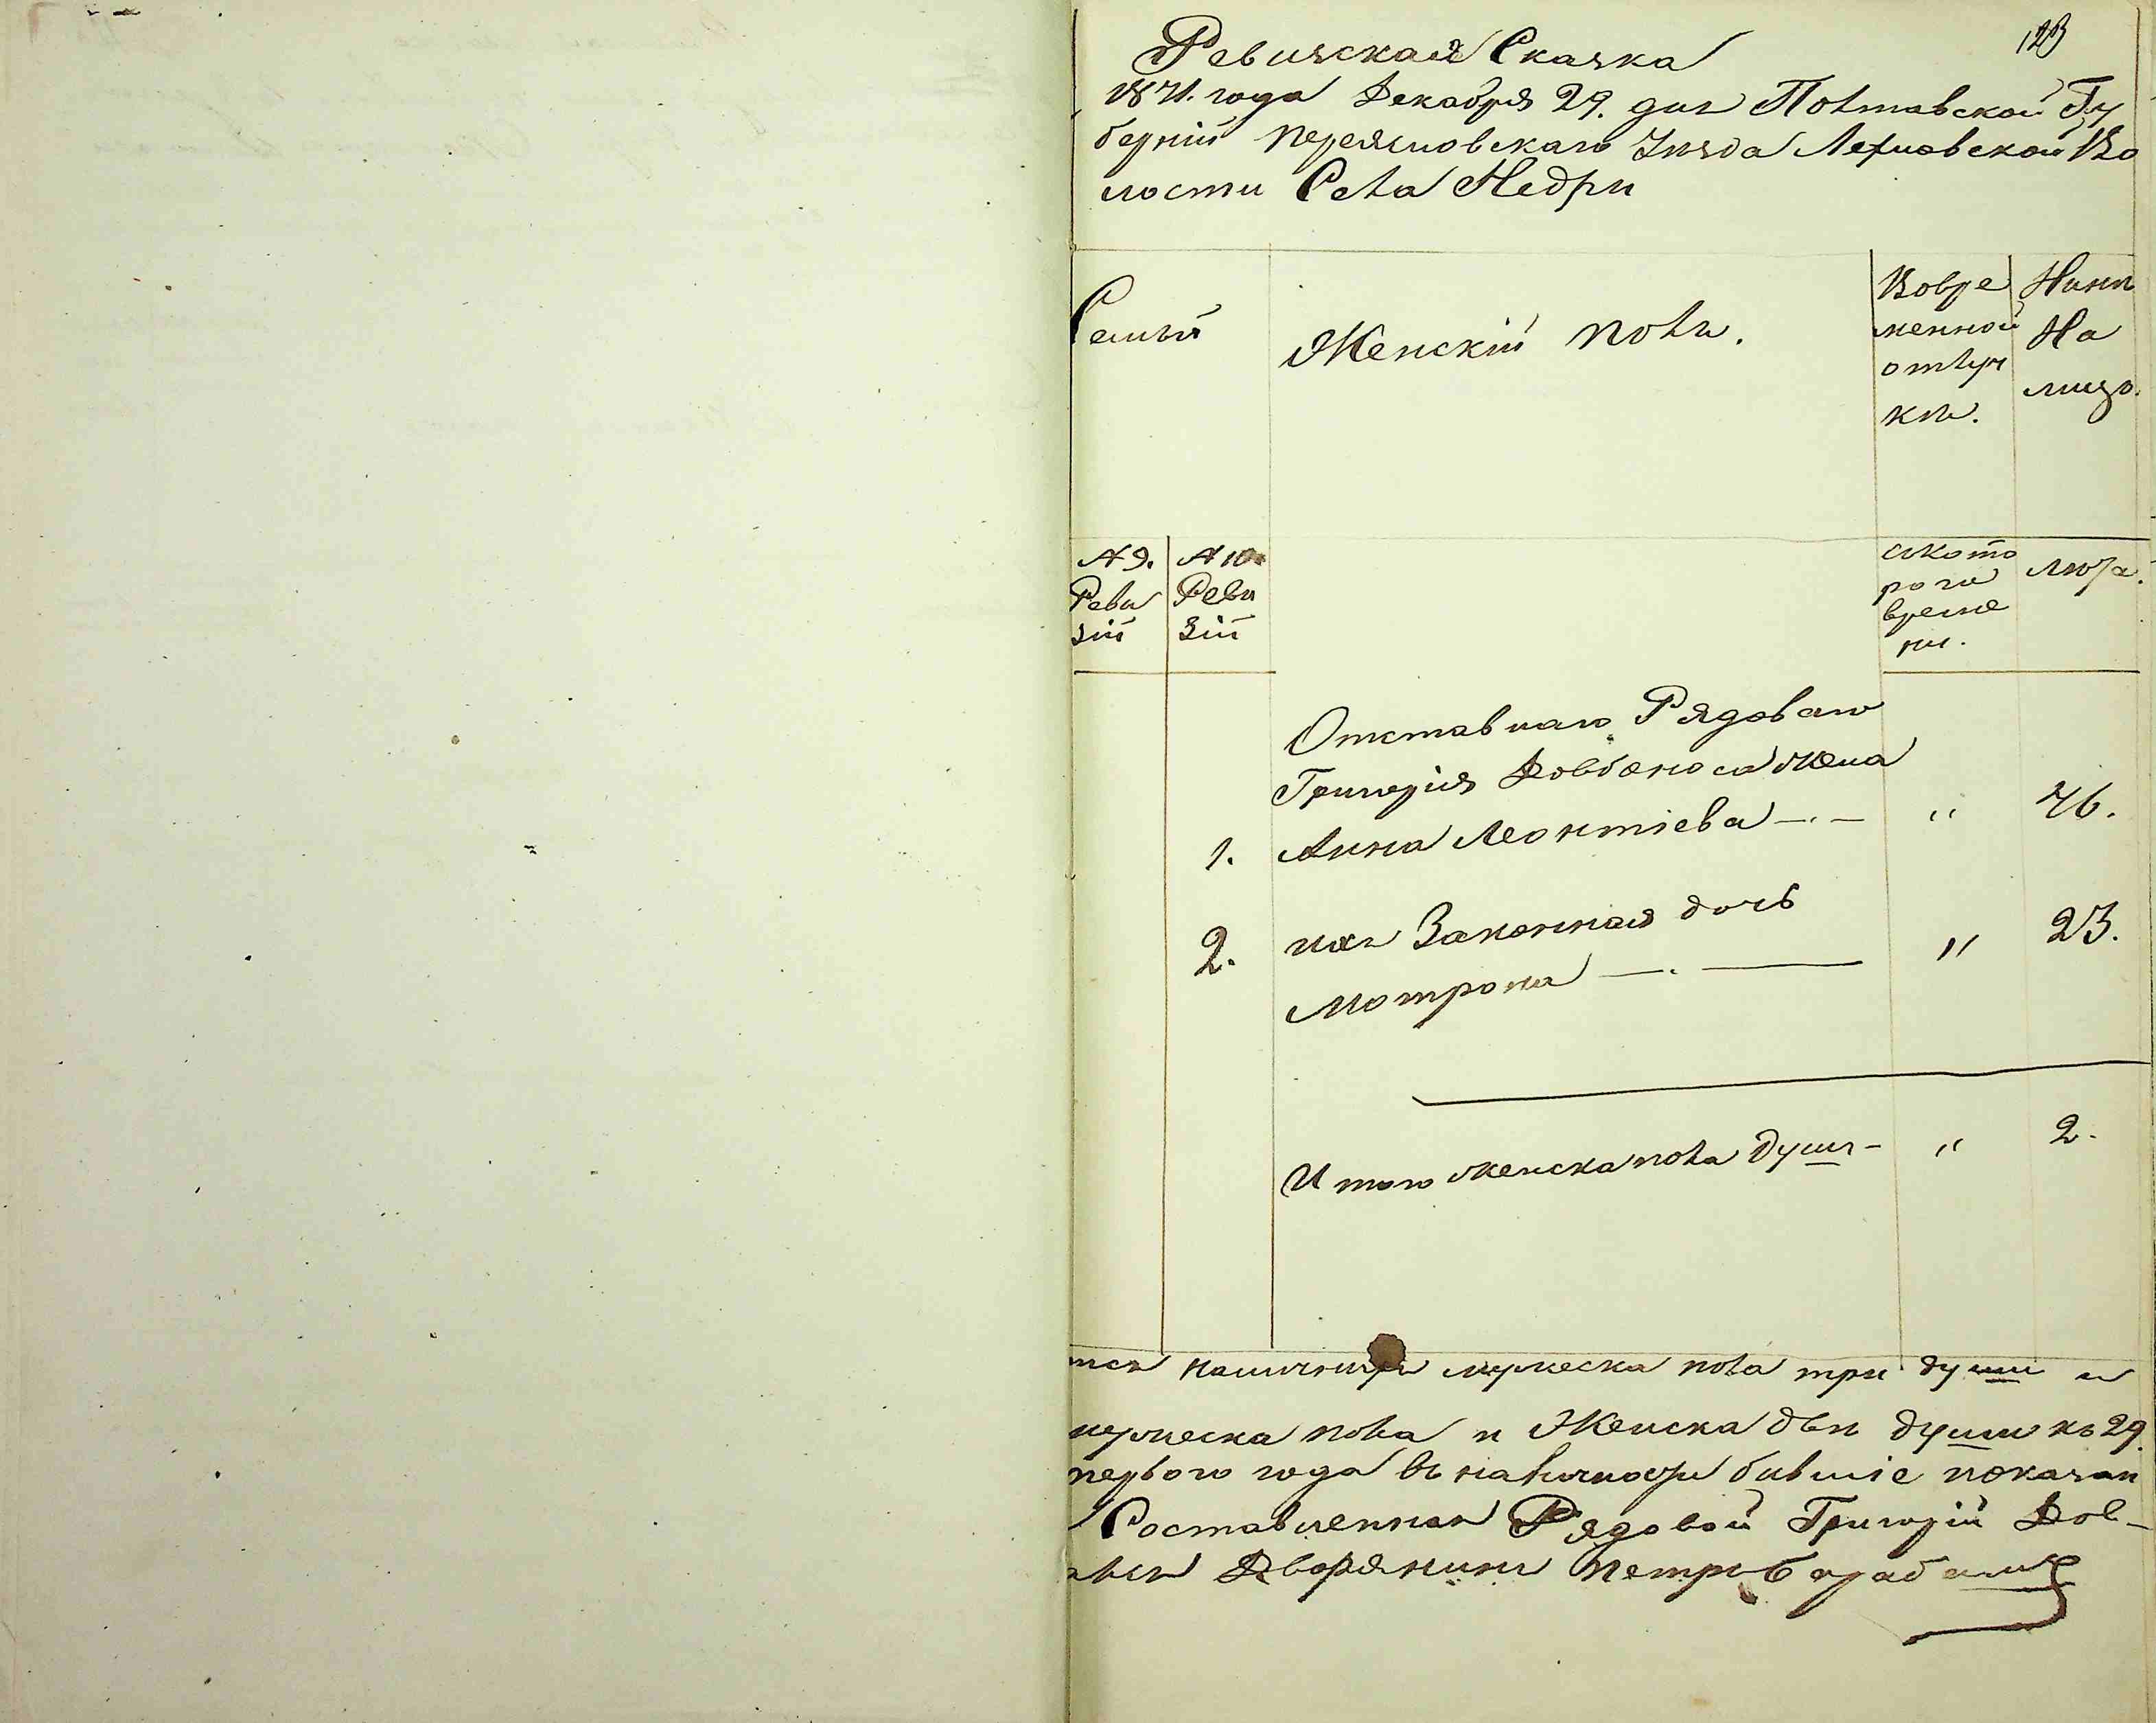 123
Ревизская Сказка
1871. года Декабря 29. дня Полтавской Гу
берніи Переясловскаго Уѣзда Лехновской Во
лости Села Недри
Семьи
Женскій полъ.
Вовре
менной
отлуч
кѣ.
Нынѣ
На
лицо.
№ 9.
Реви
зіи
№ 10.
Реви
зіи
съкото
раго
време
ни.
лета.
Отставнаго Рядоваго
Григорія Довбоноса жена
1. Анна Леонтіева — " 46.
2. ихъ Законная дочь
Мотрона — " 23.
Итого женска пола душъ - " 2.
тся наличныхъ мужеска пола три души и
мужеска пола и Женска двѣ души къ 29.
перваго года въ наличности бывшіе показан
Составленная Рядовой Григорій Дов-
Дворянинъ Петръ